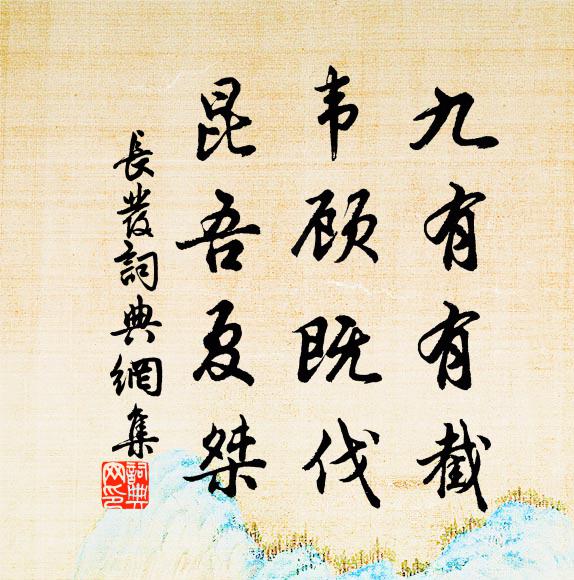 九有有截
韦顾既伐
昆吾夏桀
長發詞典網集
詞典網印